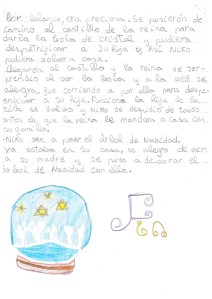 por blanja, era preciosa. Se pusieron de
camino al castillo de la reina para
darle la bola de cristal y pudiera
despetrificar a su hija y así Niko
pudiera volver a casa.
Llegaron al castillo y la reina se sor-
prendió al ver la bola y a la vez se
alegró, fue corriendo a por ella para despe-
trificar a su hija. Funciono la hija de la
reina se salvo y Niko se despidio de todos
antes de que la reina le mandara a casa con
su gomilla.
Niko ven a poner el árbol de Navidad.
Ya estaba en su casa, se alegro de ver
a su madre y se puso a decorar el
árbol de Navidad con ella.